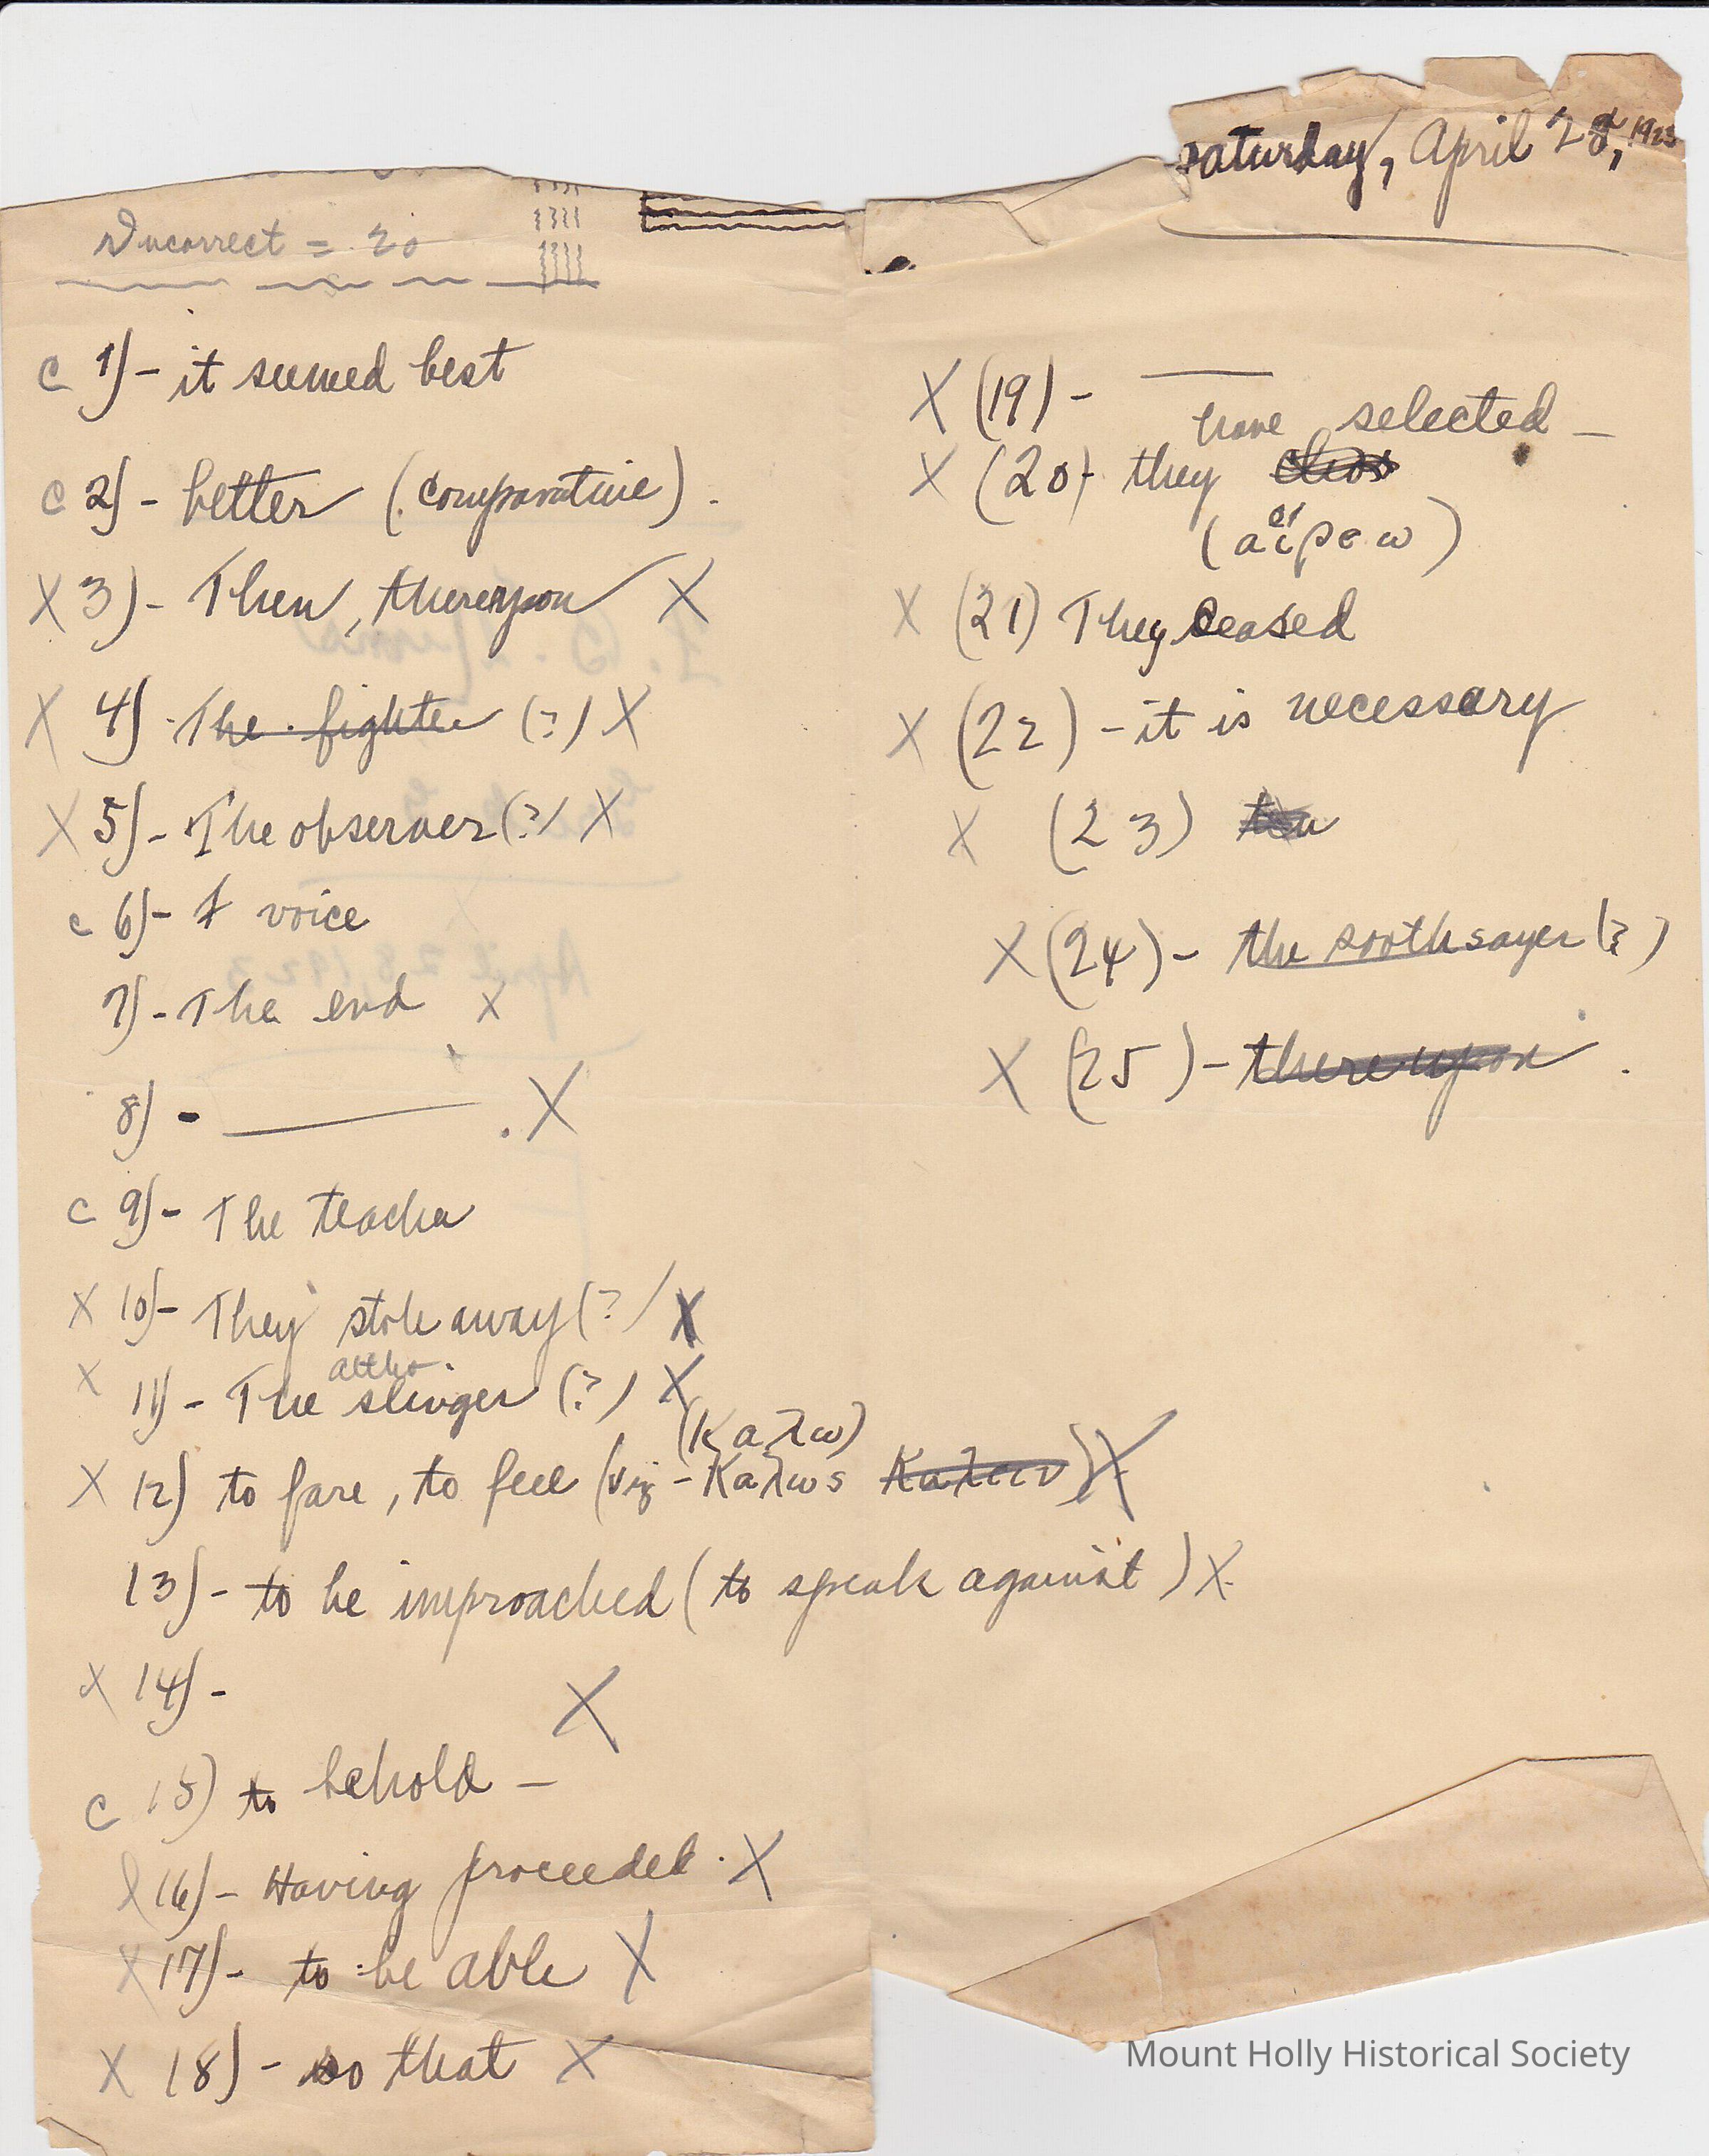 Saturday, April 28, 1923
Incorrect = 20
c 1) - it seemed best
c 2) - better (comparative).
X 3) - Then, thereupon X
X 4) - The fighter (?) X
X 5) - The observer (?) X
c 6) - A voice
7) - The end X
8) - . X
c 9) - The teacher
X 10) - They stole away (?) X
altho
X 11) - The slinger (?) X
(Καλω)
X 12) to fare, to feel (viz - Καλως) X
13) - to be improached (to speak against) X
X 14) - X
c 15) to behold -
X 16) - Having proceeded. X
X 17) - to be able X
X 18) - so that X
X (19) -
have selected -
X (20) - they chos
(αἱρεω)
X (21) They ceased
X (22) - it is necessary
X (23)
X (24) - the soothsayer (?)
X (25) - thereupon.
Mount Holly Historical Society